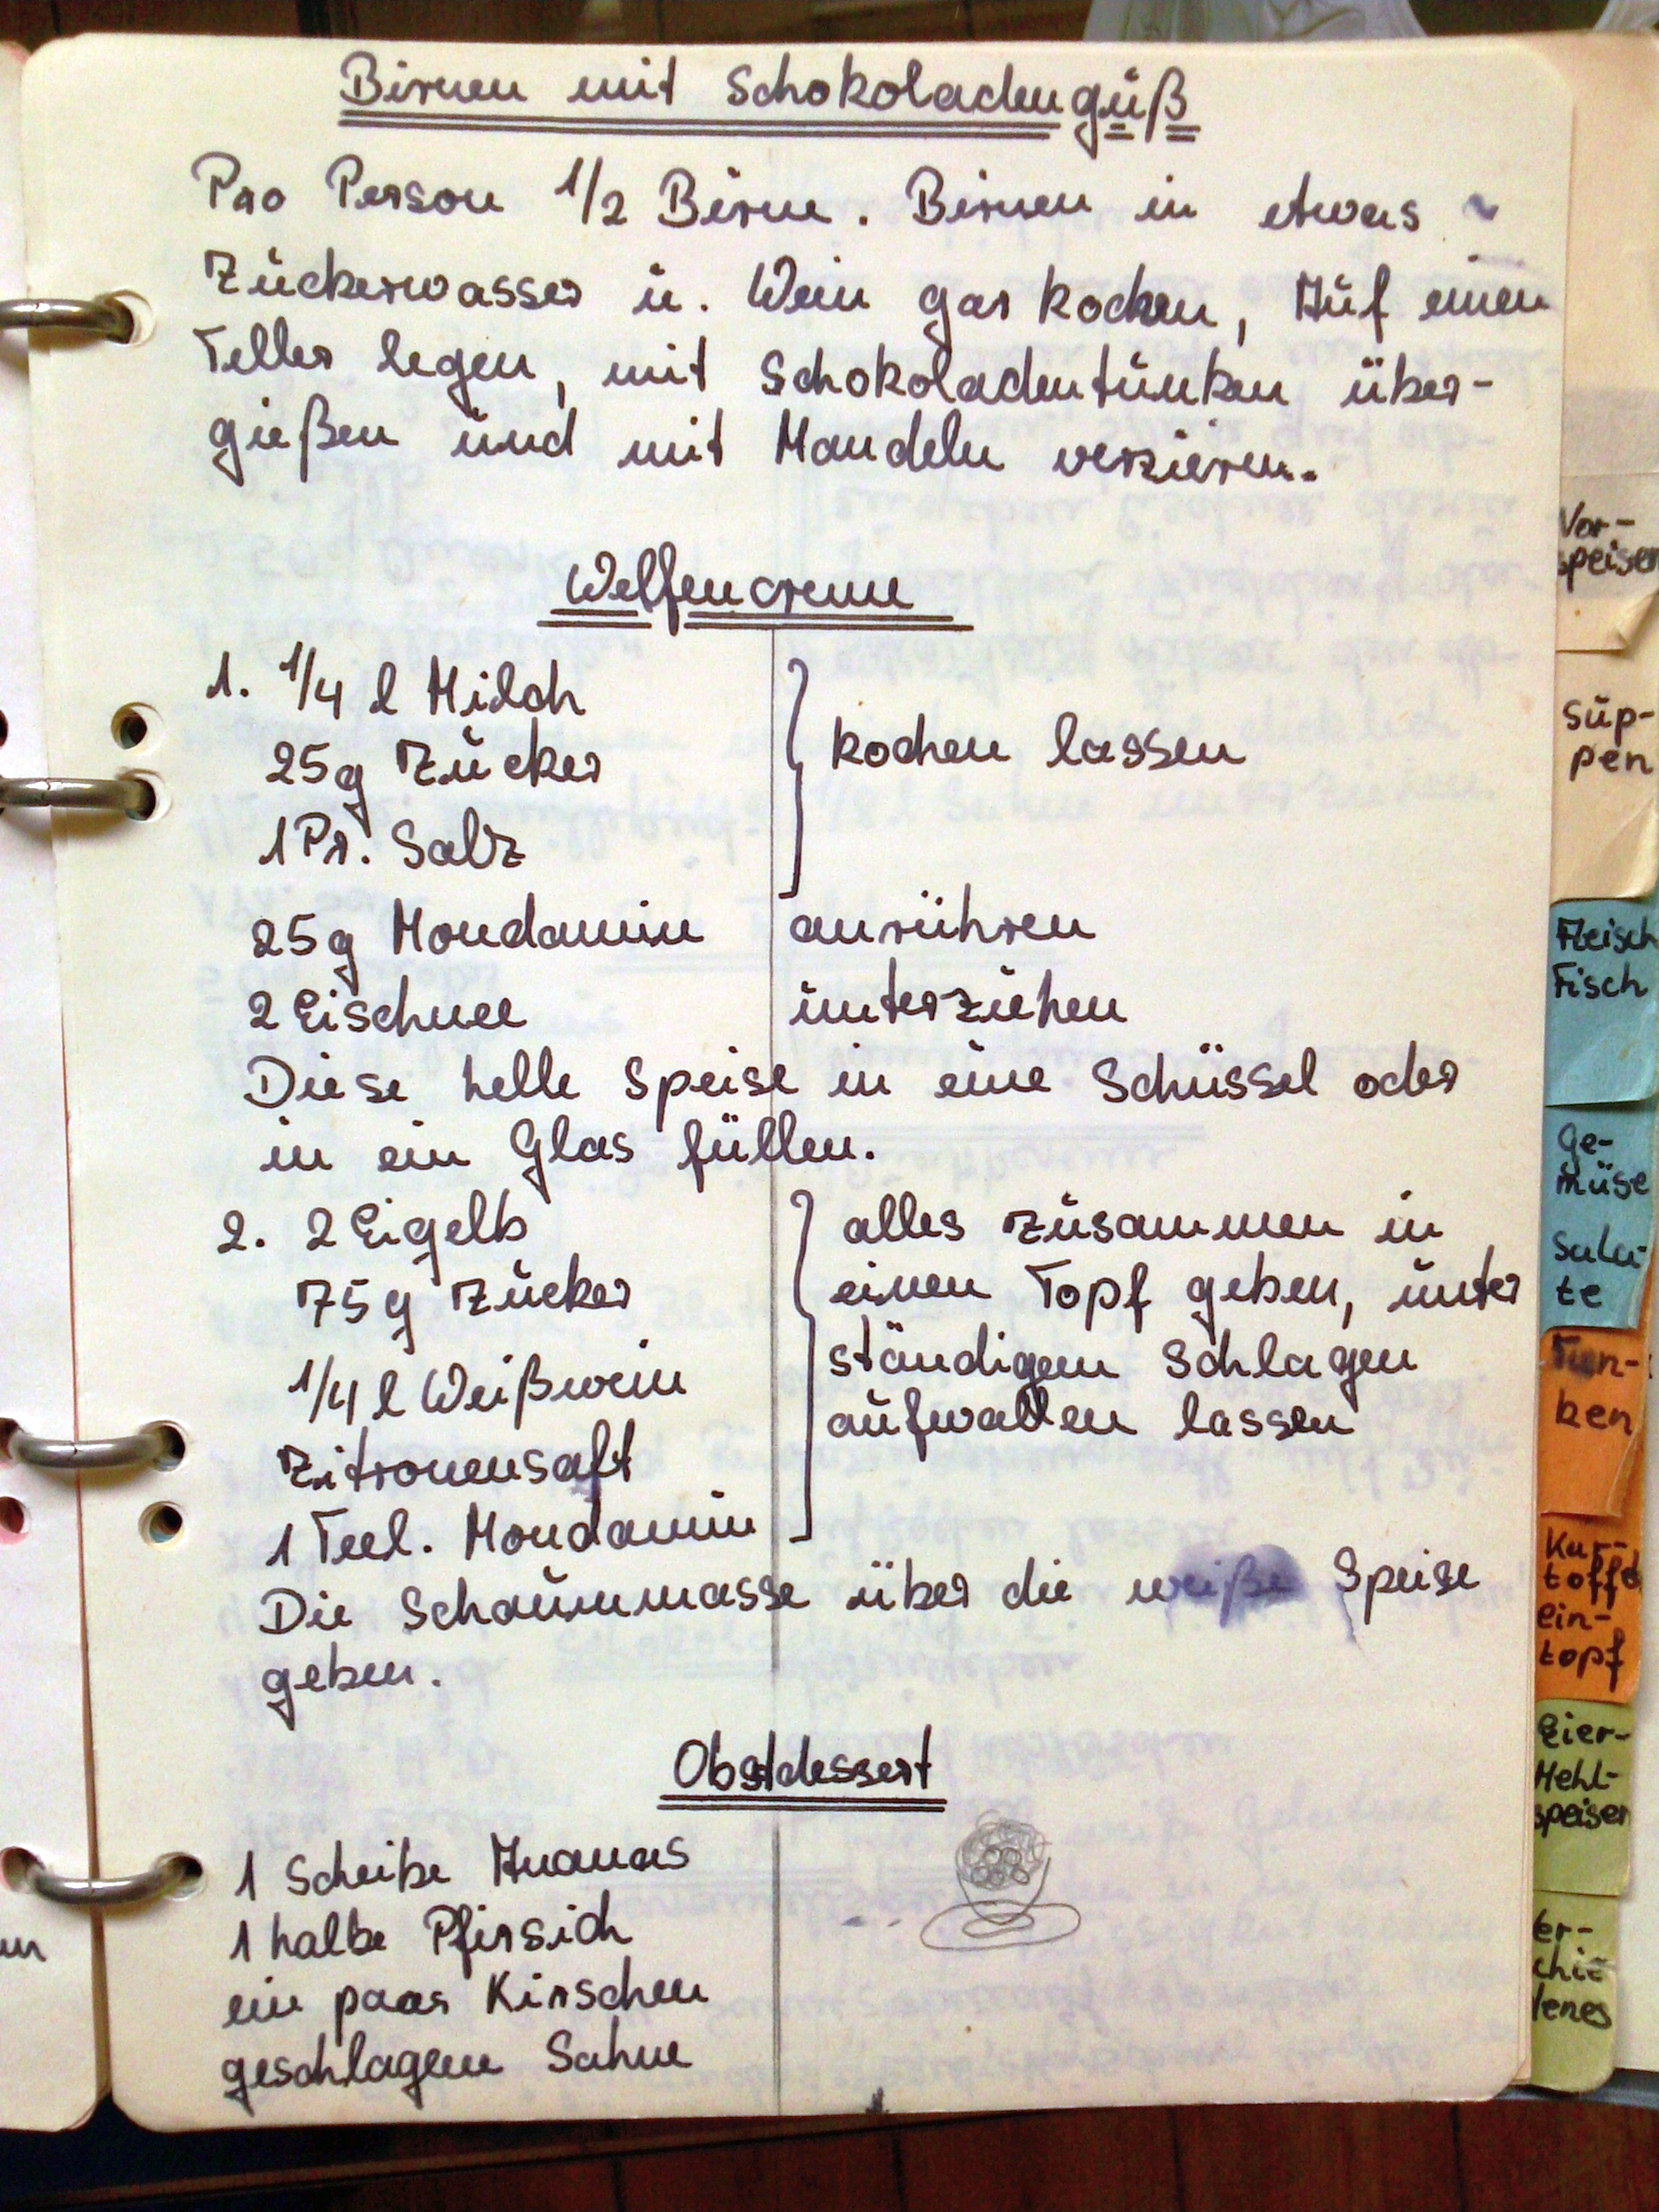 Birnen mit Schokoladenguß
Pro Person 1/2 Birne. Birnen in etwas
Zuckerwasser u. Wein gar kochen, Auf einen
Teller legen, mit Schokoladentunken über-
gießen und mit Mandeln verzieren.
Welfencreme
1. 1/4 l Milch
25g Zucker
1 Pr. Salz
kochen lassen
25g Mondamin anrühren
2 Eischnee unterziehen
Diese helle Speise in eine Schüssel oder
in ein Glas füllen.
2. 2 Eigelb
75g Zucker
1/4 l Weißwein
Zitronensaft
1 Teel. Mondamin
alles zusammen in
einen Topf geben, unter
ständigem Schlagen
aufwallen lassen
Die Schaummasse über die weiße Speise
geben.
Obstdessert
1 Scheibe Ananas
1 halbe Pfirsich
ein paar Kirschen
geschlagene Sahne
Vor-
speisen
Sup-
pen
Fleisch
Fisch
Ge-
müse
Sala-
te
Tun-
ken
Kar-
toffel
ein-
topf
Eier-
Mehl-
speisen
er-
chie
denes